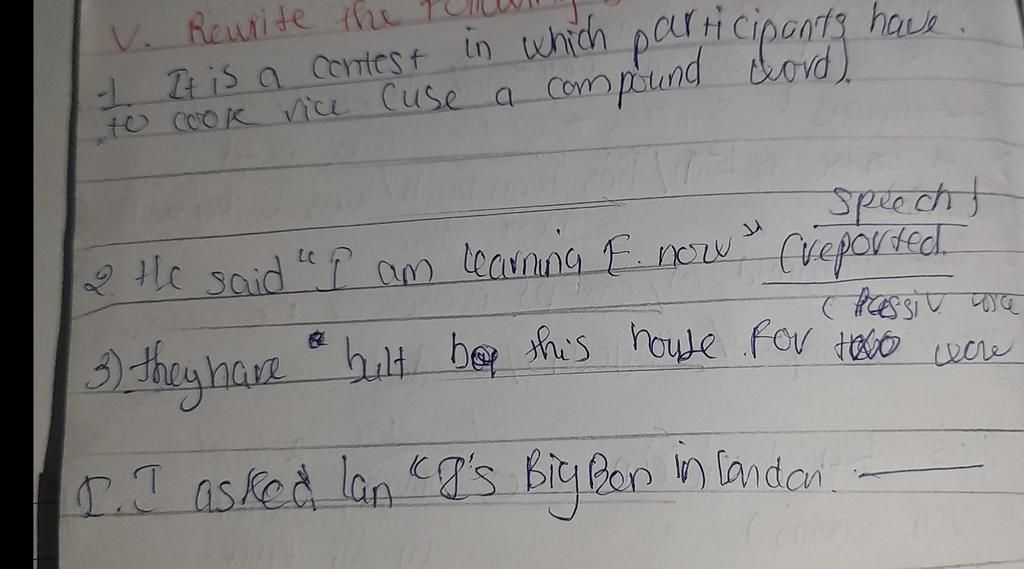 V. Rewrite the following
1 It is a contest in which participants have.
to cook rice (use a compound word).
speech)
2 He said "I am learning E. now" (reported.
(Passiv
3) they have built this house for
I. I asked Lan "Is Big Ben in London.